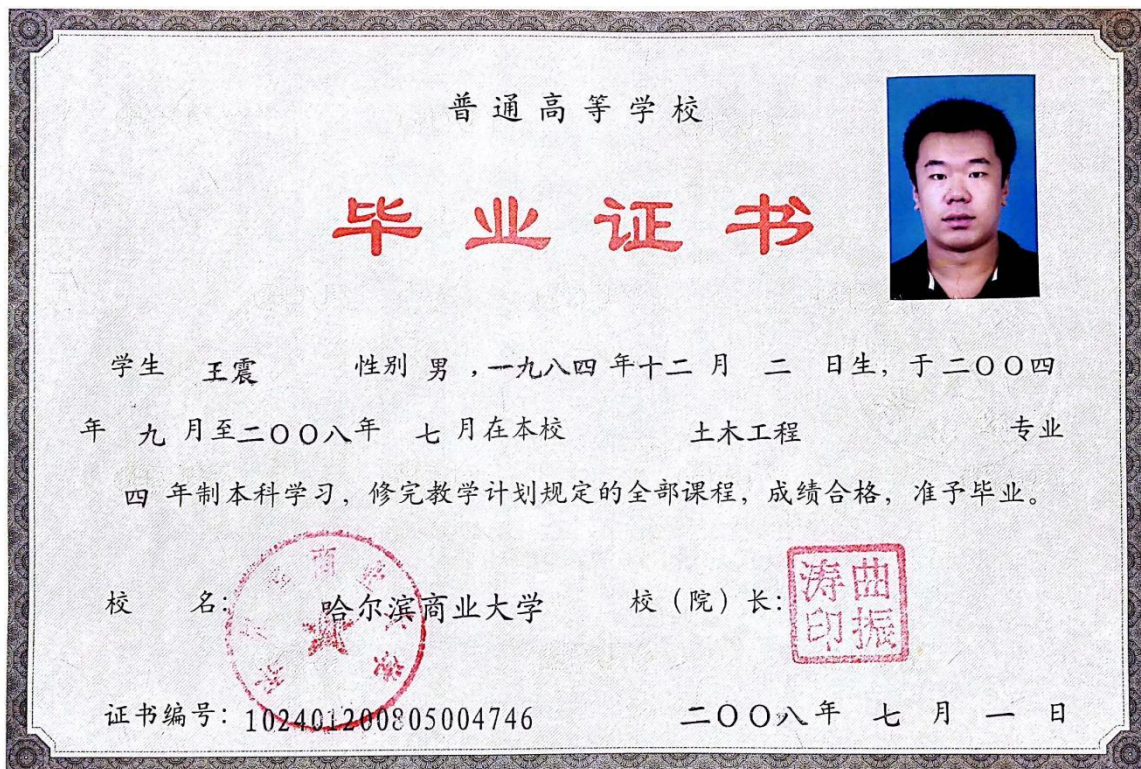 普通高等学校
毕业证书
学生 王震 性别 男 ,一九八四 年十二 月 二 日生, 于二〇〇四
年 九 月至二〇〇八年 七 月在本校 土木工程 专业
四 年制本科学习, 修完教学计划规定的全部课程, 成绩合格, 准予毕业。
校 名: 哈尔滨商业大学 校（院）长: 曲振涛印
证书编号: 102401200805004746 二〇〇八年 七 月 一 日